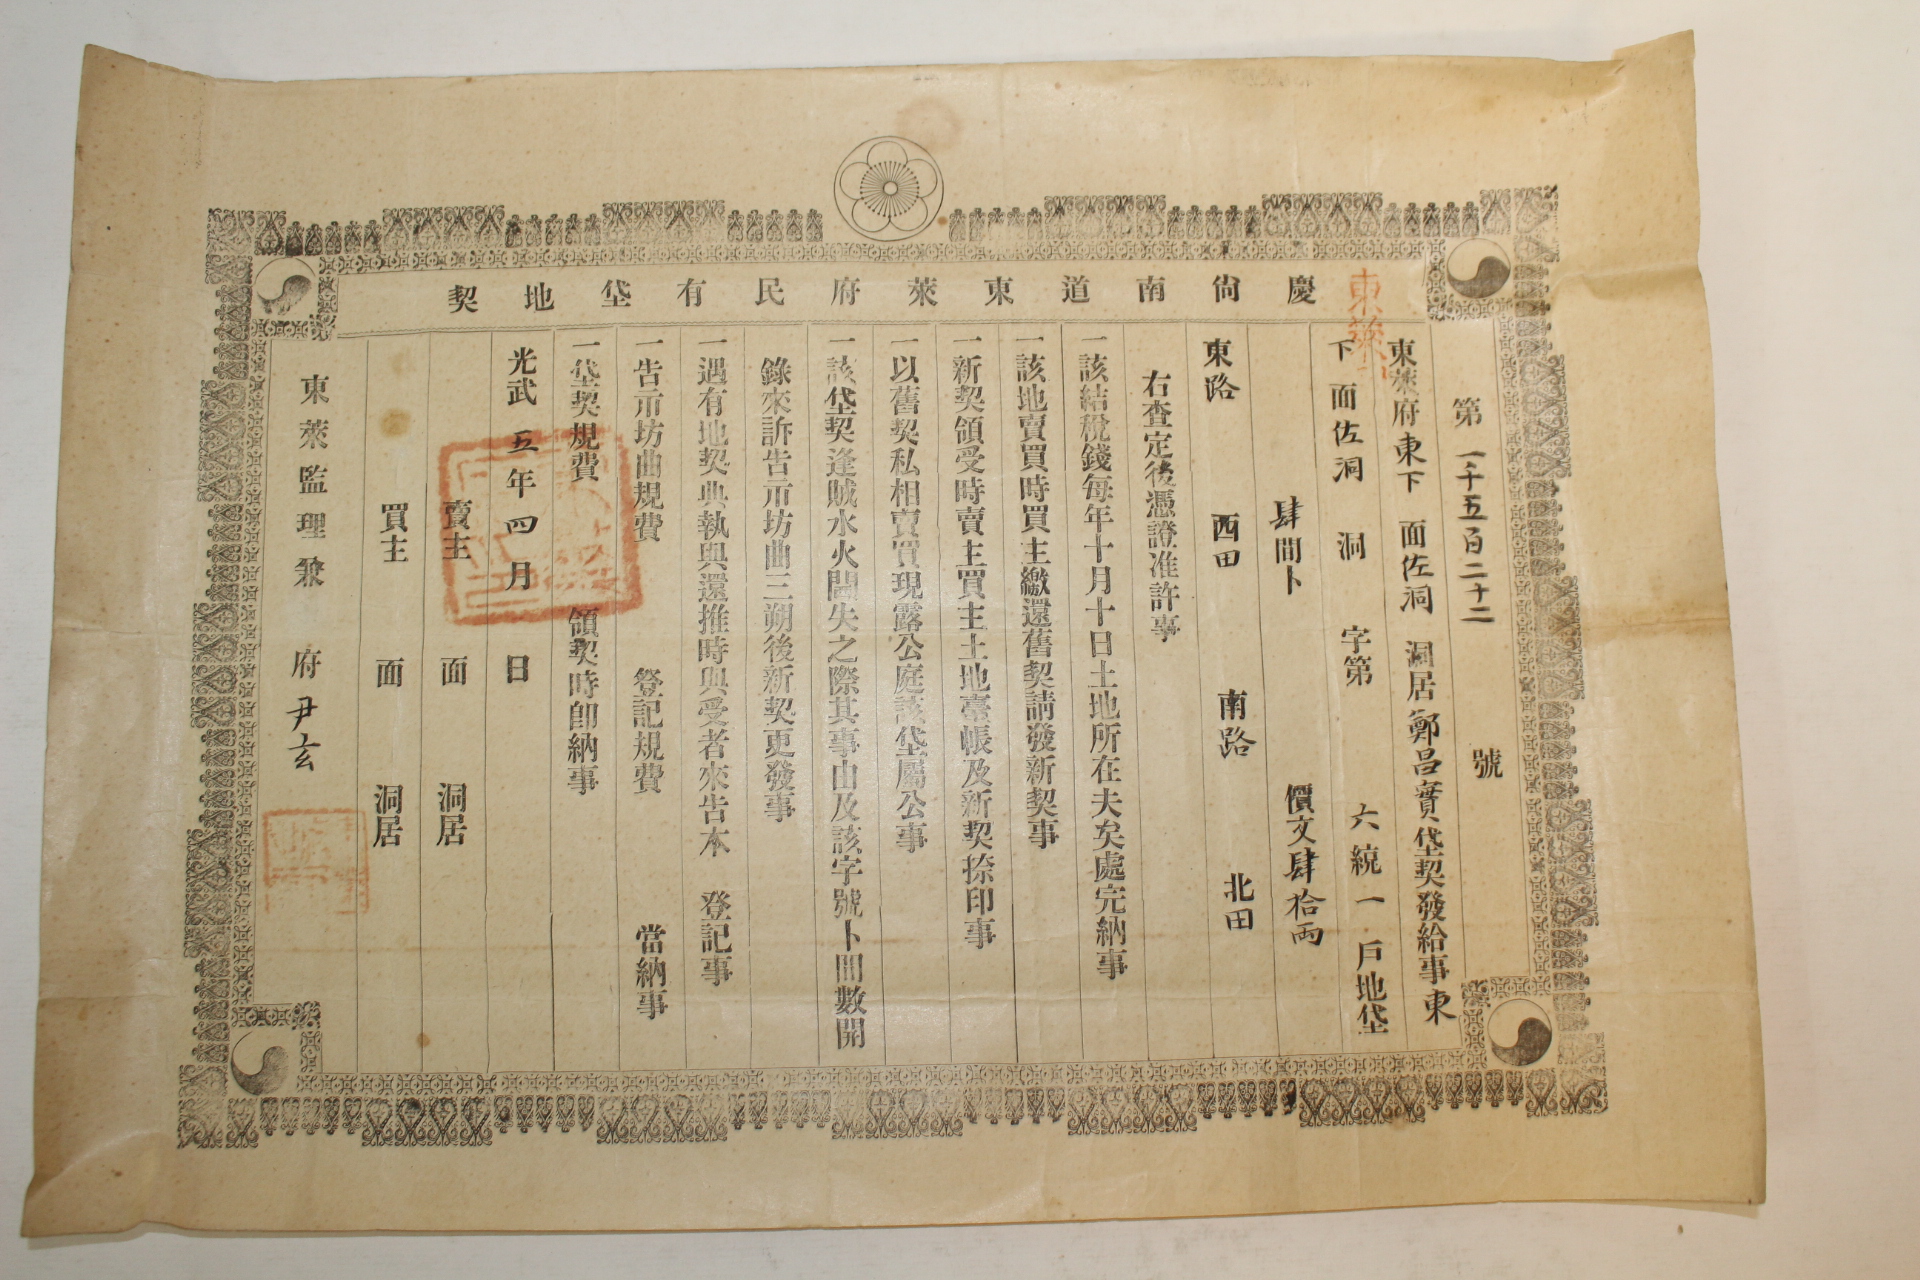 慶尙南道東萊府民有垈地契
東萊
第一千五百二十二號
東萊府東下面佐洞洞居鄭昌實垈契發給事東
下面佐洞洞字第六統一戶地垈
肆間卜價文肆拾兩
東路西田南路北田
右查定後憑證准許事
一該結稅錢每年十月十日土地所在夫矣處完納事
一該地賣買時買主繳還舊契請發新契事
一新契領受時賣主買主土地臺帳及新契捺印事
一以舊契私相賣買現露公庭該垈屬公事
一該垈契逢賊水火閪失之際其事由及該字號卜間數開
錄來訴告示坊曲三朔後新契更發事
一遇有地契典執與還推時與受者來告本 登記事
一告示坊曲規費 登記規費 當納事
一垈契規費 領契時卽納事
光武五年四月 日
賣主 面 洞居
買主 面 洞居
東萊監理兼 府尹玄